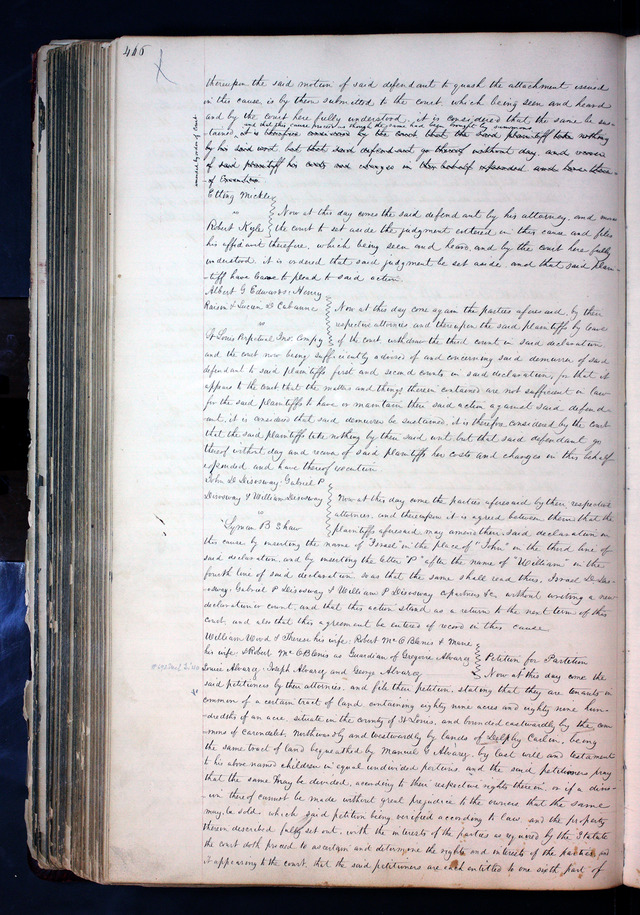 446
thereupon the said motion of said defendant to quash the attachment issued
in this cause, is by them submitted to the court which being seen and heard
and by the court here fully understood, it is considered that the same be sus-
and that this cause proceed as though the same had been brought by summons
tained, it is therefore considered by the court that the said plaintiff take nothing
by his said writ but that said defendant go thereof without day, and recover
of said plaintiff his costs and charges in this behalf expended and have thereof
of Execution
amended by order of Court
Elting Mickles
vs
Robert Kyle
Now at this day comes the said defendant by his attorney, and moves
the court to set aside the judgment entered in this cause and files
his affidavit therefore, which being seen and heard, and by the court here fully
understood, it is ordered that said judgment be set aside, and that said plain-
tiff have leave to plead to said action.
Albert G Edwards, Henry
Raisin & Lucien D Cabanne
vs
St Louis Perpetual Ins. Compy
Now at this day come again the parties aforesaid, by their
respective attornies and thereupon the said plaintiffs by leave
of the court withdraw the third count in said declaration
and the court now being sufficiently advised of and concerning said demurrer of said
defendant to said plaintiffs first and second counts in said declaration, for that it
appears to the court that the matters and things therein contained are not sufficient in law
for the said plaintiffs to have or maintain their said action against said defend-
ant, it is considered that said demurrer be sustained, it is therefore considered by the court
that the said plaintiffs take nothing by their said writ, but that said defendant go
thereof without day and recover of said plaintiffs her costs and charges in this behalf
expended and have thereof execution
John D Disosway, Gabriel P
Disosway & William Disosway
vs
Lyman B Shaw
Now at this day come the parties aforesaid by their respective
attornies, and thereupon it is agreed between them that the
plaintiffs aforesaid may amend their said declaration in
this cause by inserting the name of "Israel" in the place of "John" in the third line of
said declaration, and by inserting the letter "P" after the name of "William" in the
fourth line of said declaration so as that the same shall read thus, Israel D Dis-
osway, Gabriel P Disosway & William P Disosway copartners &c, without writing a new
declaration or count, and that this action stand as a return to the next term of this
court, and also that this agreement be entered of record in this cause
William Wood & Therese his wife, Robert Mc OBlenis & Marie
his wife & Robert Mc OBlenis as Guardian of Gregoire Alvarez
Louis Alvarez, Joseph Alvarez and George Alvarez
Petition for Partition
Now at this day come the
said petitioners by their attornies, and file their petition, stating that they are tenants in
common of a certain tract of land containing eighty nine acres and eighty nine hun-
dredths of an acre, situate in the county of St Louis, and bounded eastwardly by the com
mons of Carondelet, Northwardly and Westwardly by lands of Delphy Carlin, being
the same tract of land bequeathed by Manuel G Alvarez, by last will and testament
to his above named children in equal undivided portions, and the said petitioners pray
that the same may be divided, according to their respective rights therein, or if a divis-
ion thereof cannot be made without great prejudice to the owners that the same
may be sold, which said petition being verified according to Law, and the property
therein described fully set out, with the interests of the parties as required by the Statute
the court doth proceed to ascertain and determine the rights and interests of the parties, and
it appearing to the court, that the said petitioners are each entitled to one sixth part of